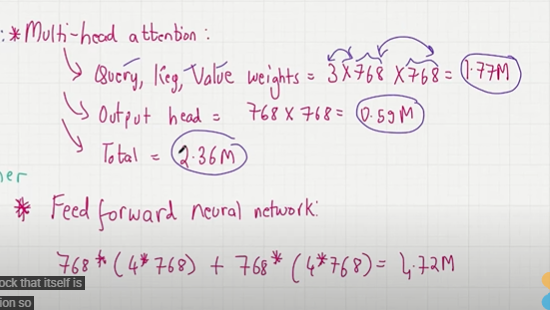 :* Multi-head attention :
↳ Query, Key, Value weights = 3 × 768 × 768 = 1.77M
↳ Output head = 768 × 768 = 0.59M
↳ Total = 2.36M
ner
* Feed forward neural network:
768 * (4*768) + 768* (4*768) = 4.72M
ock that itself is
ion so